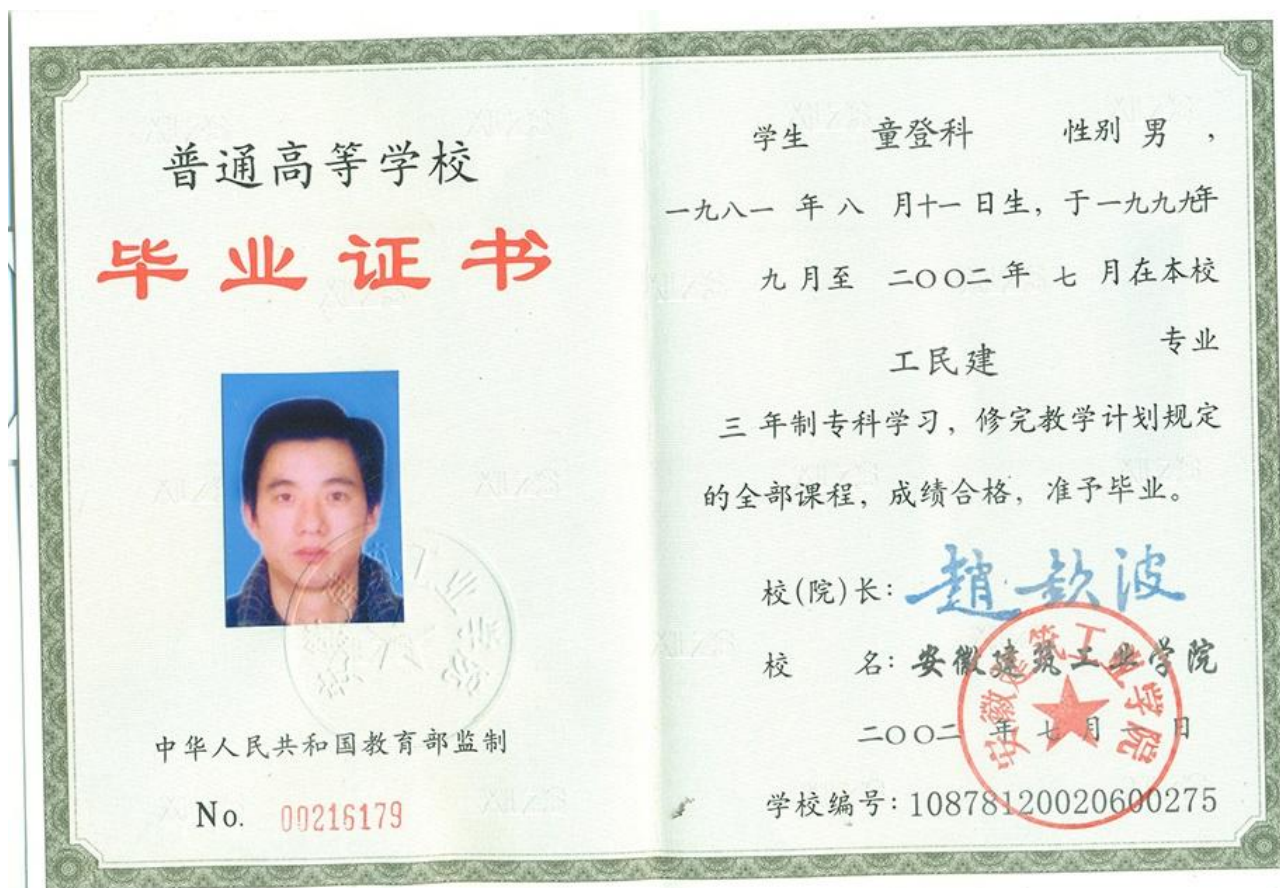 普通高等学校
毕业证书
中华人民共和国教育部监制
No. 00216179
学生 童登科 性别 男 ,
一九八一 年 八 月十一日生, 于一九九九年
九 月至 二〇〇二 年 七 月在本校
工民建 专业
三 年制专科学习, 修完教学计划规定
的全部课程, 成绩合格, 准予毕业。
校(院)长: 趙欽波
校 名: 安徽建筑工业学院
二〇〇二 年 七 月 日
学校编号: 10878120020600275
安徽建筑工业学院